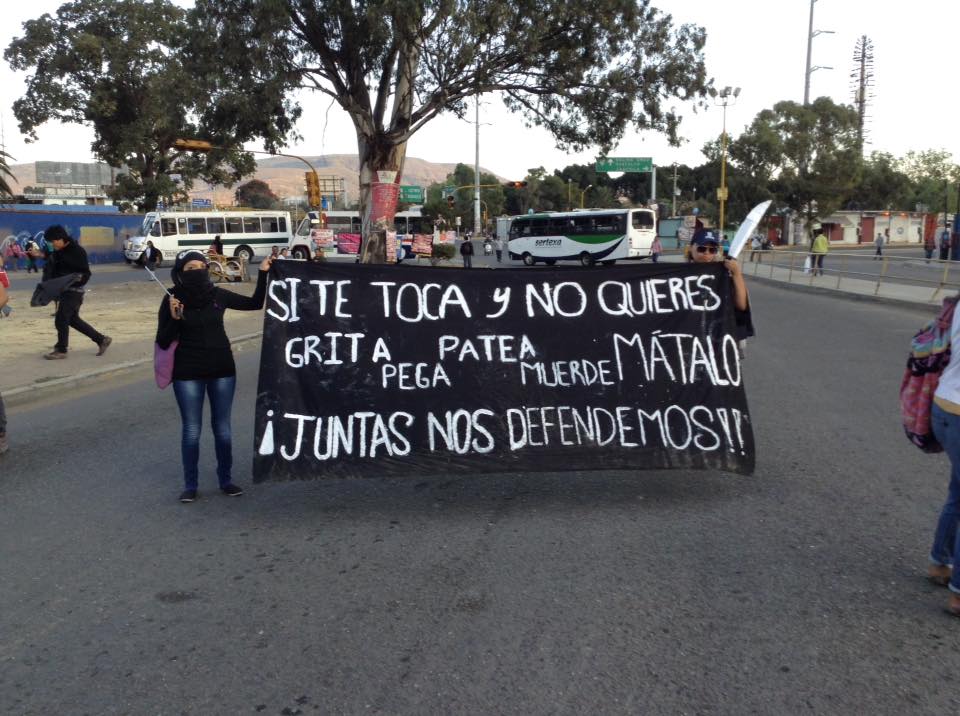 SI TE TOCA y NO QUIERES
GRITA PATEA MÁTALO
PEGA MUERDE
¡JUNTAS NOS DEFENDEMOS!!
sertexa